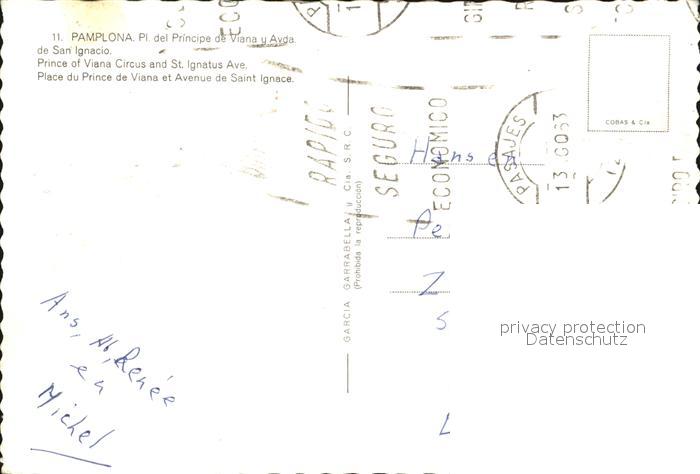 11. PAMPLONA. Pl. del Príncipe de Viana y Avda.
de San Ignacio.
Prince of Viana Circus and St. Ignatus Ave.
Place du Prince de Viana et Avenue de Saint Ignace.
COBAS & Cía
RAPIDO
SEGURO
ECONOMICO
PASAJES
GARCIA GARRABELLA y Cía. S.R.C.
(Prohibida la reproducción)
Hansen
Pe
Z
S
L
privacy protection
Datenschutz
Ans, Ab, Renée
en
Michel